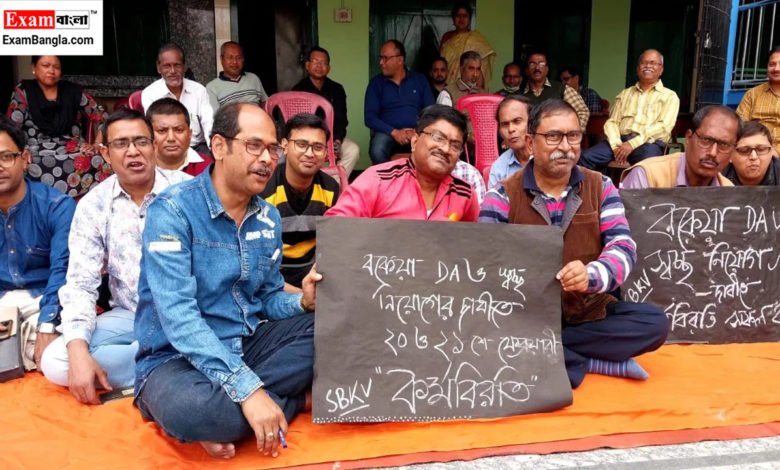 Exam বাংলা
ExamBangla.com
বকেয়া DA ও স্বচ্ছ
নিয়োগের দাবীতে
২০ ও ২১ শে ফেব্রুয়ারী
SBKV "কর্মবিরতি"
"বকেয়া DA
ও
স্বচ্ছ নিয়োগ
দাবীতে
SBKV